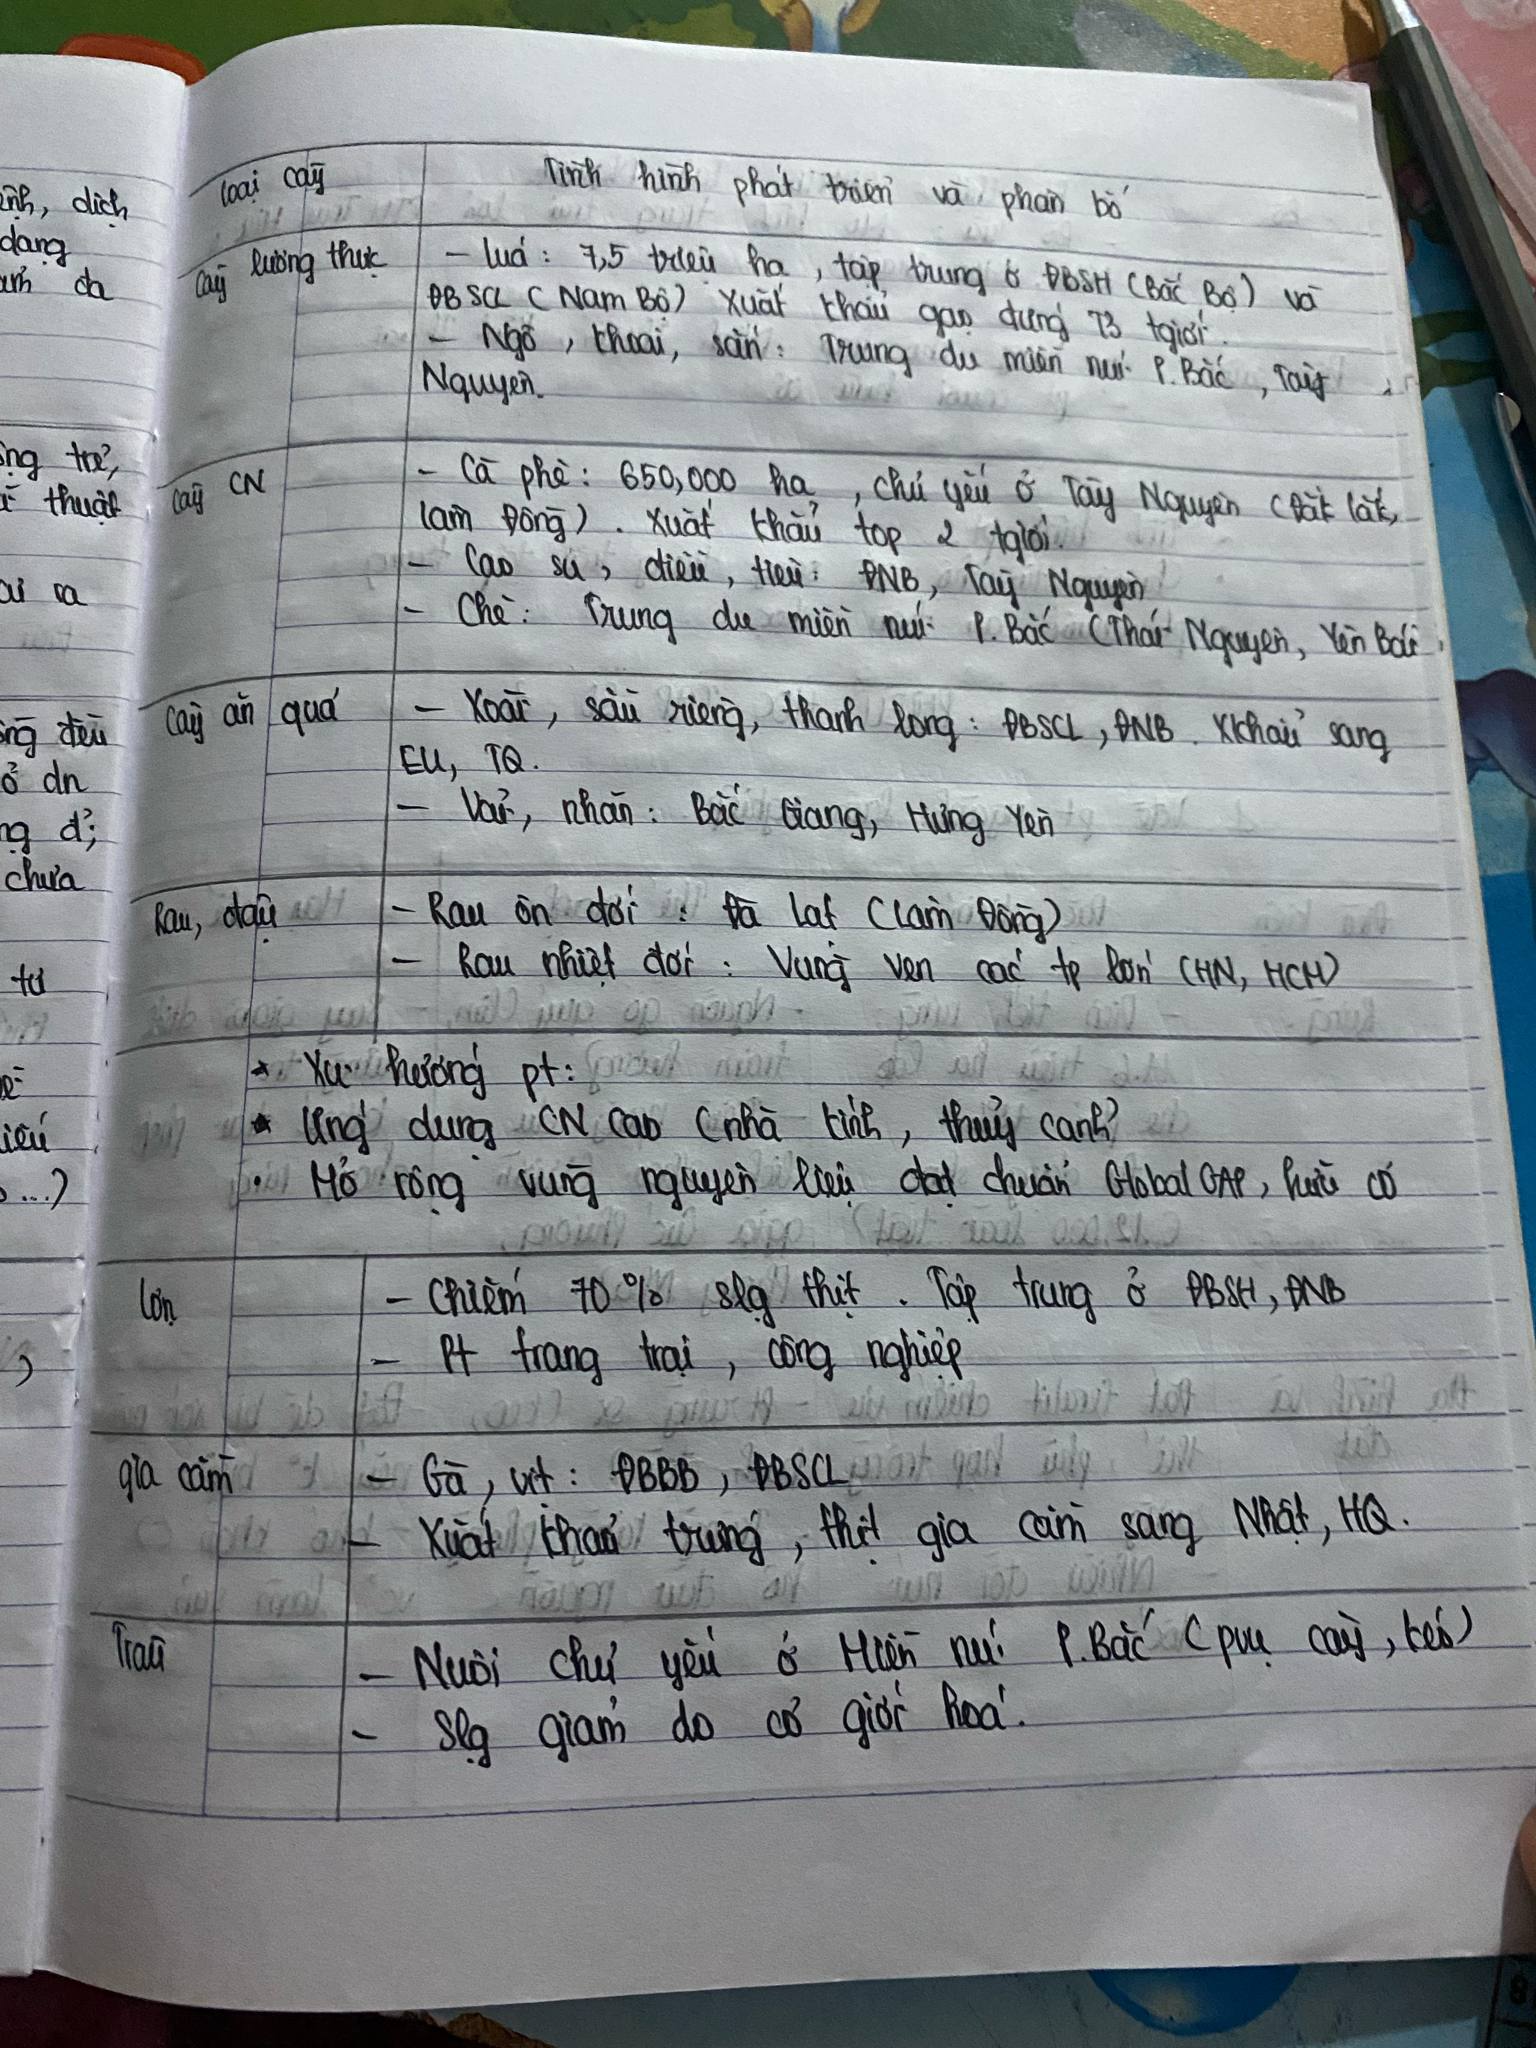 ình, dịch
dạng
ảm đa
ông trẻ,
thuật
ai ra
ông đều
ở dn
ng đ;
chưa
tư
iếu
...)
Loại cây
Tình hình phát triển và phân bố
Cây lương thực
- Lúa: 7,5 triệu ha, tập trung ở ĐBSH (Bắc Bộ) và
ĐBSCL (Nam Bộ) Xuất khẩu gạo đứng T3 tgiới.
- Ngô, khoai, sắn: Trung du miền núi P.Bắc, Tây
Nguyên.
Cây CN
- Cà phê: 650,000 ha, chủ yếu ở Tây Nguyên (Đắk Lắk,
Lâm Đồng). Xuất khẩu top 2 tgiới.
- Cao su, điều, tiêu: ĐNB, Tây Nguyên
- Chè: Trung du miền núi P.Bắc (Thái Nguyên, Yên Bái
Cây ăn quả
- Xoài, sầu riêng, thanh long: ĐBSCL, ĐNB. Xkhẩu sang
EU, TQ.
- Vải, nhãn: Bắc Giang, Hưng Yên
Rau, đậu
- Rau ôn đới: Đà Lạt (Lâm Đồng)
- Rau nhiệt đới: Vùng ven các tp lớn (HN, HCM)
* Xu hướng pt:
* Ứng dụng CN cao (nhà kính, thuỷ canh)
• Mở rộng vùng nguyên liệu đạt chuẩn GlobalGAP, hữu cơ
Lợn
- Chiếm 70% slg thịt. Tập trung ở ĐBSH, ĐNB
- Pt trang trại, công nghiệp
gia cầm
- Gà, vịt: ĐBBB, ĐBSCL
- Xuất khẩu trứng, thịt gia cầm sang Nhật, HQ.
Trâu
- Nuôi chủ yếu ở Miền núi P.Bắc (pvụ cày, kéo)
- Slg giảm do cơ giới hoá.